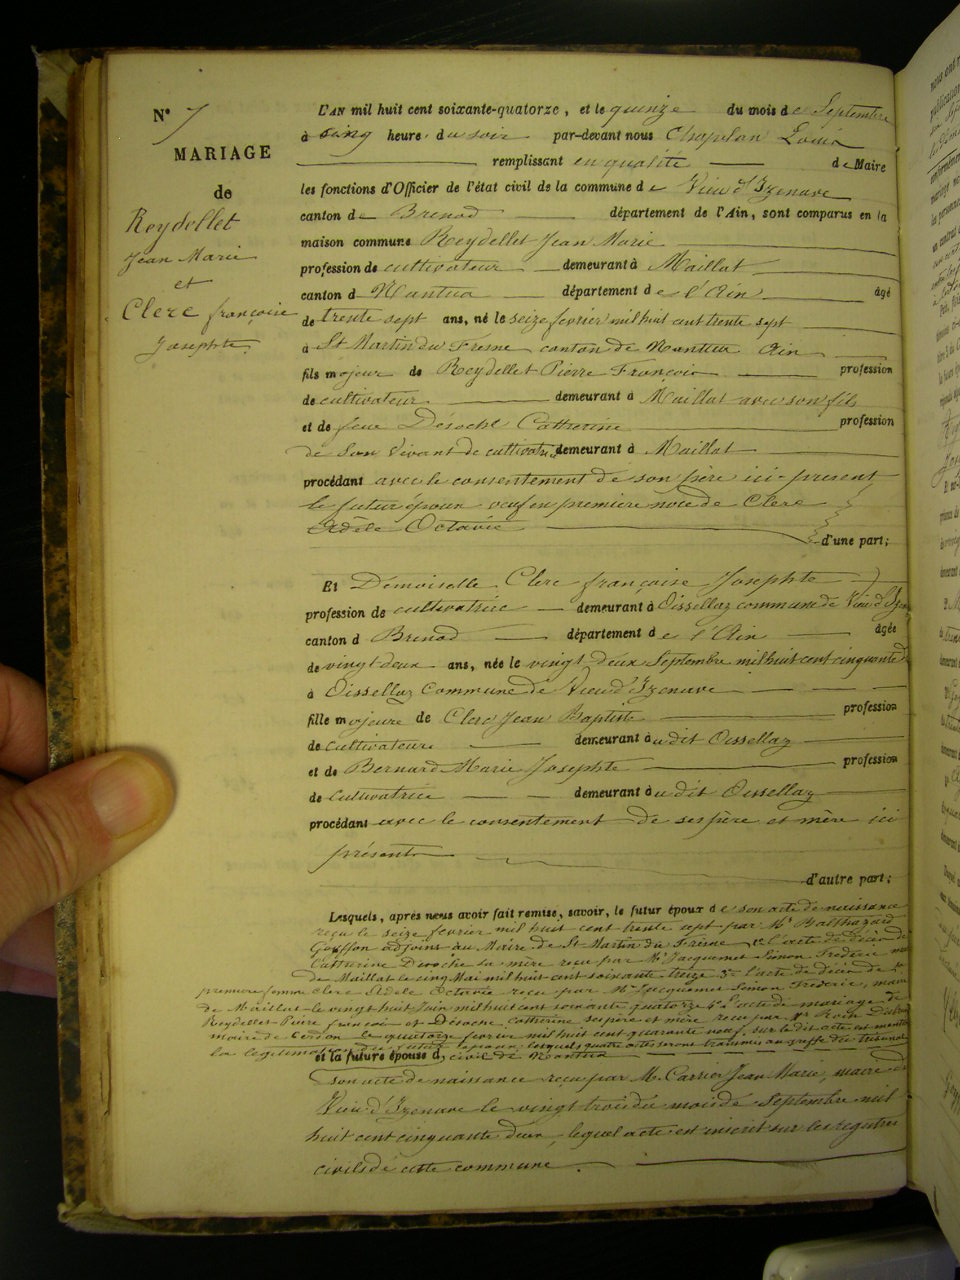 N° 7
MARIAGE
de
Reydellet
Jean Marie
et
Clerc françoise
Josephte
L'AN mil huit cent soixante-quatorze, et le quinze du mois de Septembre
à cinq heure du soir par-devant nous Chapelan Louis
remplissant en qualité de Maire
les fonctions d'Officier de l'état civil de la commune de Vieu d'Izenave
canton de Brenod département de l'Ain, sont comparus en la
maison commune Reydellet Jean Marie
profession de cultivateur demeurant à Maillat
canton d Nantua département de l'Ain âgé
de trente sept ans, né le seize fevrier mil huit cent trente sept
à St Martin du Fresne canton de Nantua Ain
fils majeur de Reydellet Pierre François profession
de cultivateur demeurant à Maillat avec son fils
et de feue Désoche Catherine profession
de Son Vivant de cultivatrice demeurant à Maillat
procédant avec le consentement de son père ici présent
le futur époux veuf en première noce de Clerc
Adèle Octavie d'une part;
Et Demoiselle Clerc françoise Josephte
profession de cultivatrice demeurant à Oissellaz commune de Vieu d'Izen
canton d Brenod département de l'Ain âgée
de vingt deux ans, née le vingt deux Septembre mil huit cent cinquante d
à Oissellaz Commune de Vieu d'Izenave
fille majeure de Clerc Jean Baptiste profession
de Cultivateur demeurant à udit Oissellaz
et de Bernard Marie Josephte profession
de Cultivatrice demeurant à udit Oissellaz
procédant avec le consentement de ses père et mère ici
présents
d'autre part;
Lesquels, après nous avoir fait remise, savoir, le futur époux de son acte de naissance
reçu le seize fevrier mil huit cent trente sept par Mr Balthazard
Gouffon adjoint au Maire de St Martin du Fresne, 2° l'acte de décès de
Catherine Desoche sa mère reçu par Mr Jacquemet Simon Frederic
de Maillat le cinq Mai mil huit cent soixante treize 3° l'acte de décès de
première femme Clerc Adele Octavie reçu par Mr Jacquemet Simon Frederic, maire
de Maillat le vingt huit Juin mil huit cent soixante quatorze 4° l'acte de mariage de
Reydellet Pierre françois et Désoche Catherine ses père et mère reçu par Mr
maire de Cerdon le quatorze fevrier mil huit cent quarante neuf, sur le dit acte est mentio
la legitimation du futur époux lesquels quatre actes seront transmis au greffe du tribunal
et la future épouse d, civil de Nantua
son acte de naissance reçu par M. Carrier Jean Marie, maire de
Vieu d'Izenave le vingt trois du mois de Septembre mil
huit cent cinquante deux, lequel acte est inscrit sur les registres
civils de cette commune.